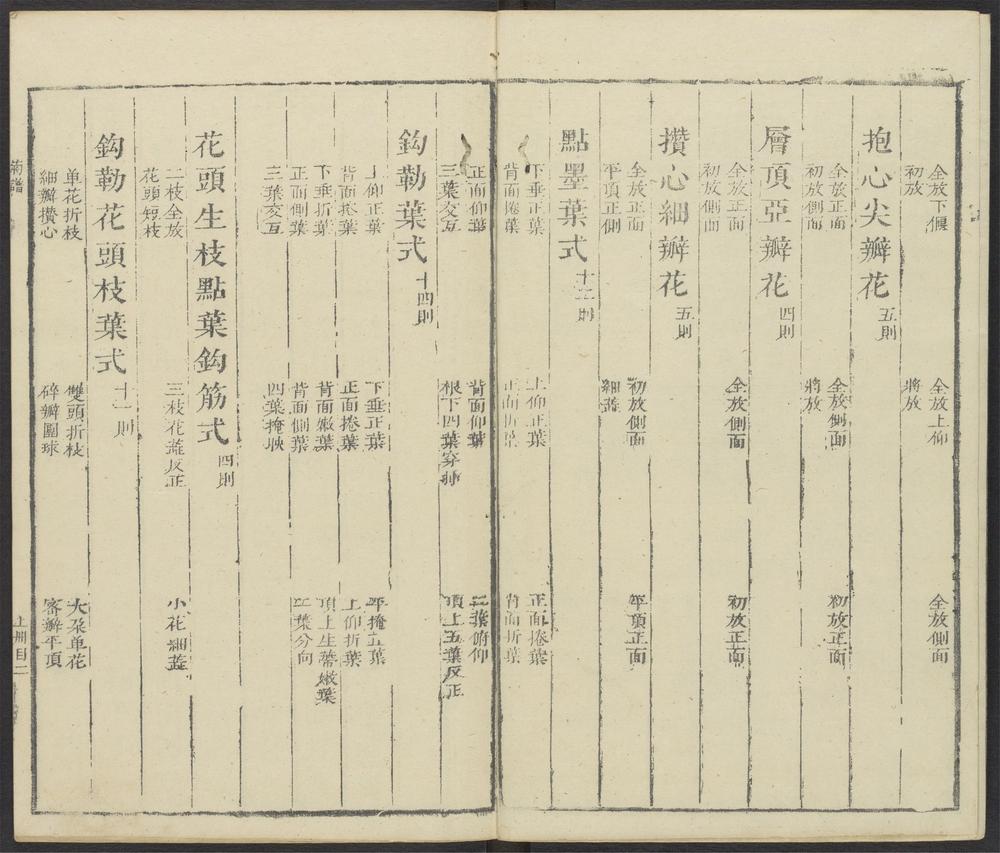 全放下偃　全放上仰　全放側面
初放　將放
抱心尖瓣花 五則
全放正面　全放側面　初放正面
初放側面　將放
層頂亞瓣花 四則
全放正面　全放側面　初放正面
初放側面
攢心細瓣花 五則
全放正面　初放側面　平頂正面
平頂正側　細蕊
點墨葉式 十二則
下垂正葉　上仰正葉　正面捲葉
背面捲葉　正面折葉　背面折葉
正面仰葉　背面仰葉　二葉俯仰
三葉交互　根下四葉穿插　頂上五葉反正
鈎勒葉式 十四則
上仰正葉　下垂正葉　平掩正葉
背面捲葉　正面捲葉　上仰折葉
下垂折葉　背面嫩葉　頂上生蕊嫩葉
正面側葉　背面側葉　二葉分向
三葉交互　四葉掩映
花頭生枝點葉鈎筋式 四則
二枝全放　三枝花蕊反正　小花細蕊
花頭短枝
鈎勒花頭枝葉式 十一則
单花折枝　雙頭折枝　大朶单花
細瓣攢心　碎瓣圓球　密瓣平頂
菊譜　上册目二